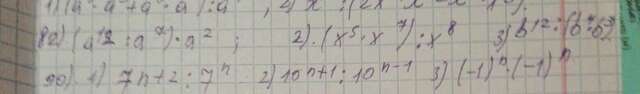 89) (a¹² : a⁷) · a² ; 2) (x⁵ · x⁷) : x⁸ 3) b¹² : (b⁴ · b²)
90) 1) 7n+2 : 7ⁿ 2) 10ⁿ⁺¹ : 10ⁿ⁻¹ 3) (-1)ⁿ · (-1)ⁿ